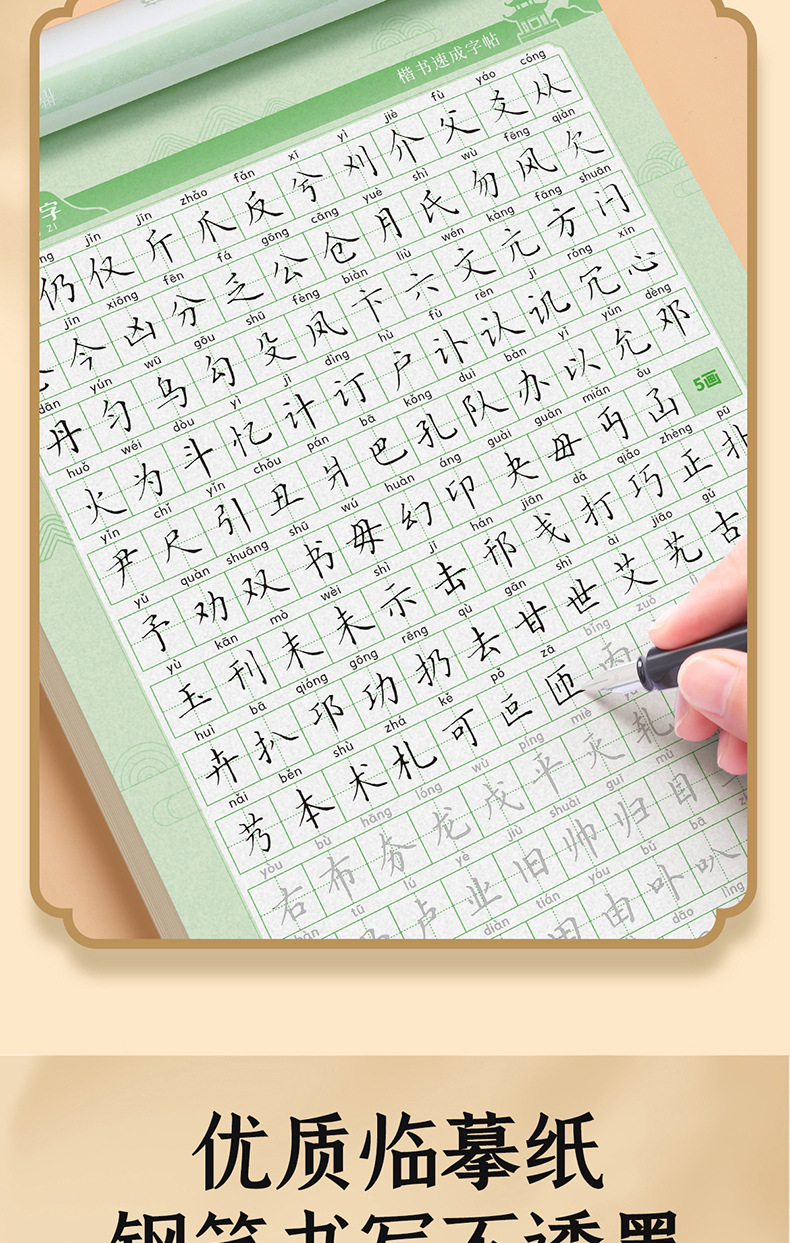 楷书速成字帖
字
ZI
jǐn jīn zhǎo fǎn xī yì jiè fù yáo cóng
仍仅斤爪反兮刈介父爻从
jīn xiōng fēn fá gōng cāng yuè shì wù fēng qiàn
今凶分乏公仓月氏勿风欠
dān yún wū gōu shū fèng biàn liù wén kàng fāng shuān
丹匀乌勾殳凤卞六文亢方闩
huǒ wéi dòu yì jì dìng hù fù rèn jī rǒng xīn
火为斗忆计订户讣认讥冗心
yǐn chǐ yǐn chǒu pán bā kǒng duì bàn yǐ yǔn dèng
尹尺引丑爿巴孔队办以允邓 5画
yǔ quàn shuāng shū wú huàn áng guài guàn miǎn óu
予劝双书毋幻卬夬毌丏
yù kān mò wèi shì jī hán jiān dǎ qiǎo zhèng pū
玉刊末未示击邗戋打巧正扑
huì bā qióng gōng rēng qù gān shì ài jiāo gǔ
卉扒邛功扔去甘世艾艽古
nǎi běn shù zhá kě pǒ zā bǐng zuǒ
艿本术札可叵匝丙
yòu bù hāng lóng wù píng miè
右布夯龙戊平灭轧
lú yè jiù shuài guī mù
卢业旧帅归目
diàn tián yóu bǔ bā
田由卟叭
优质临摹纸
钢笔书写不透墨